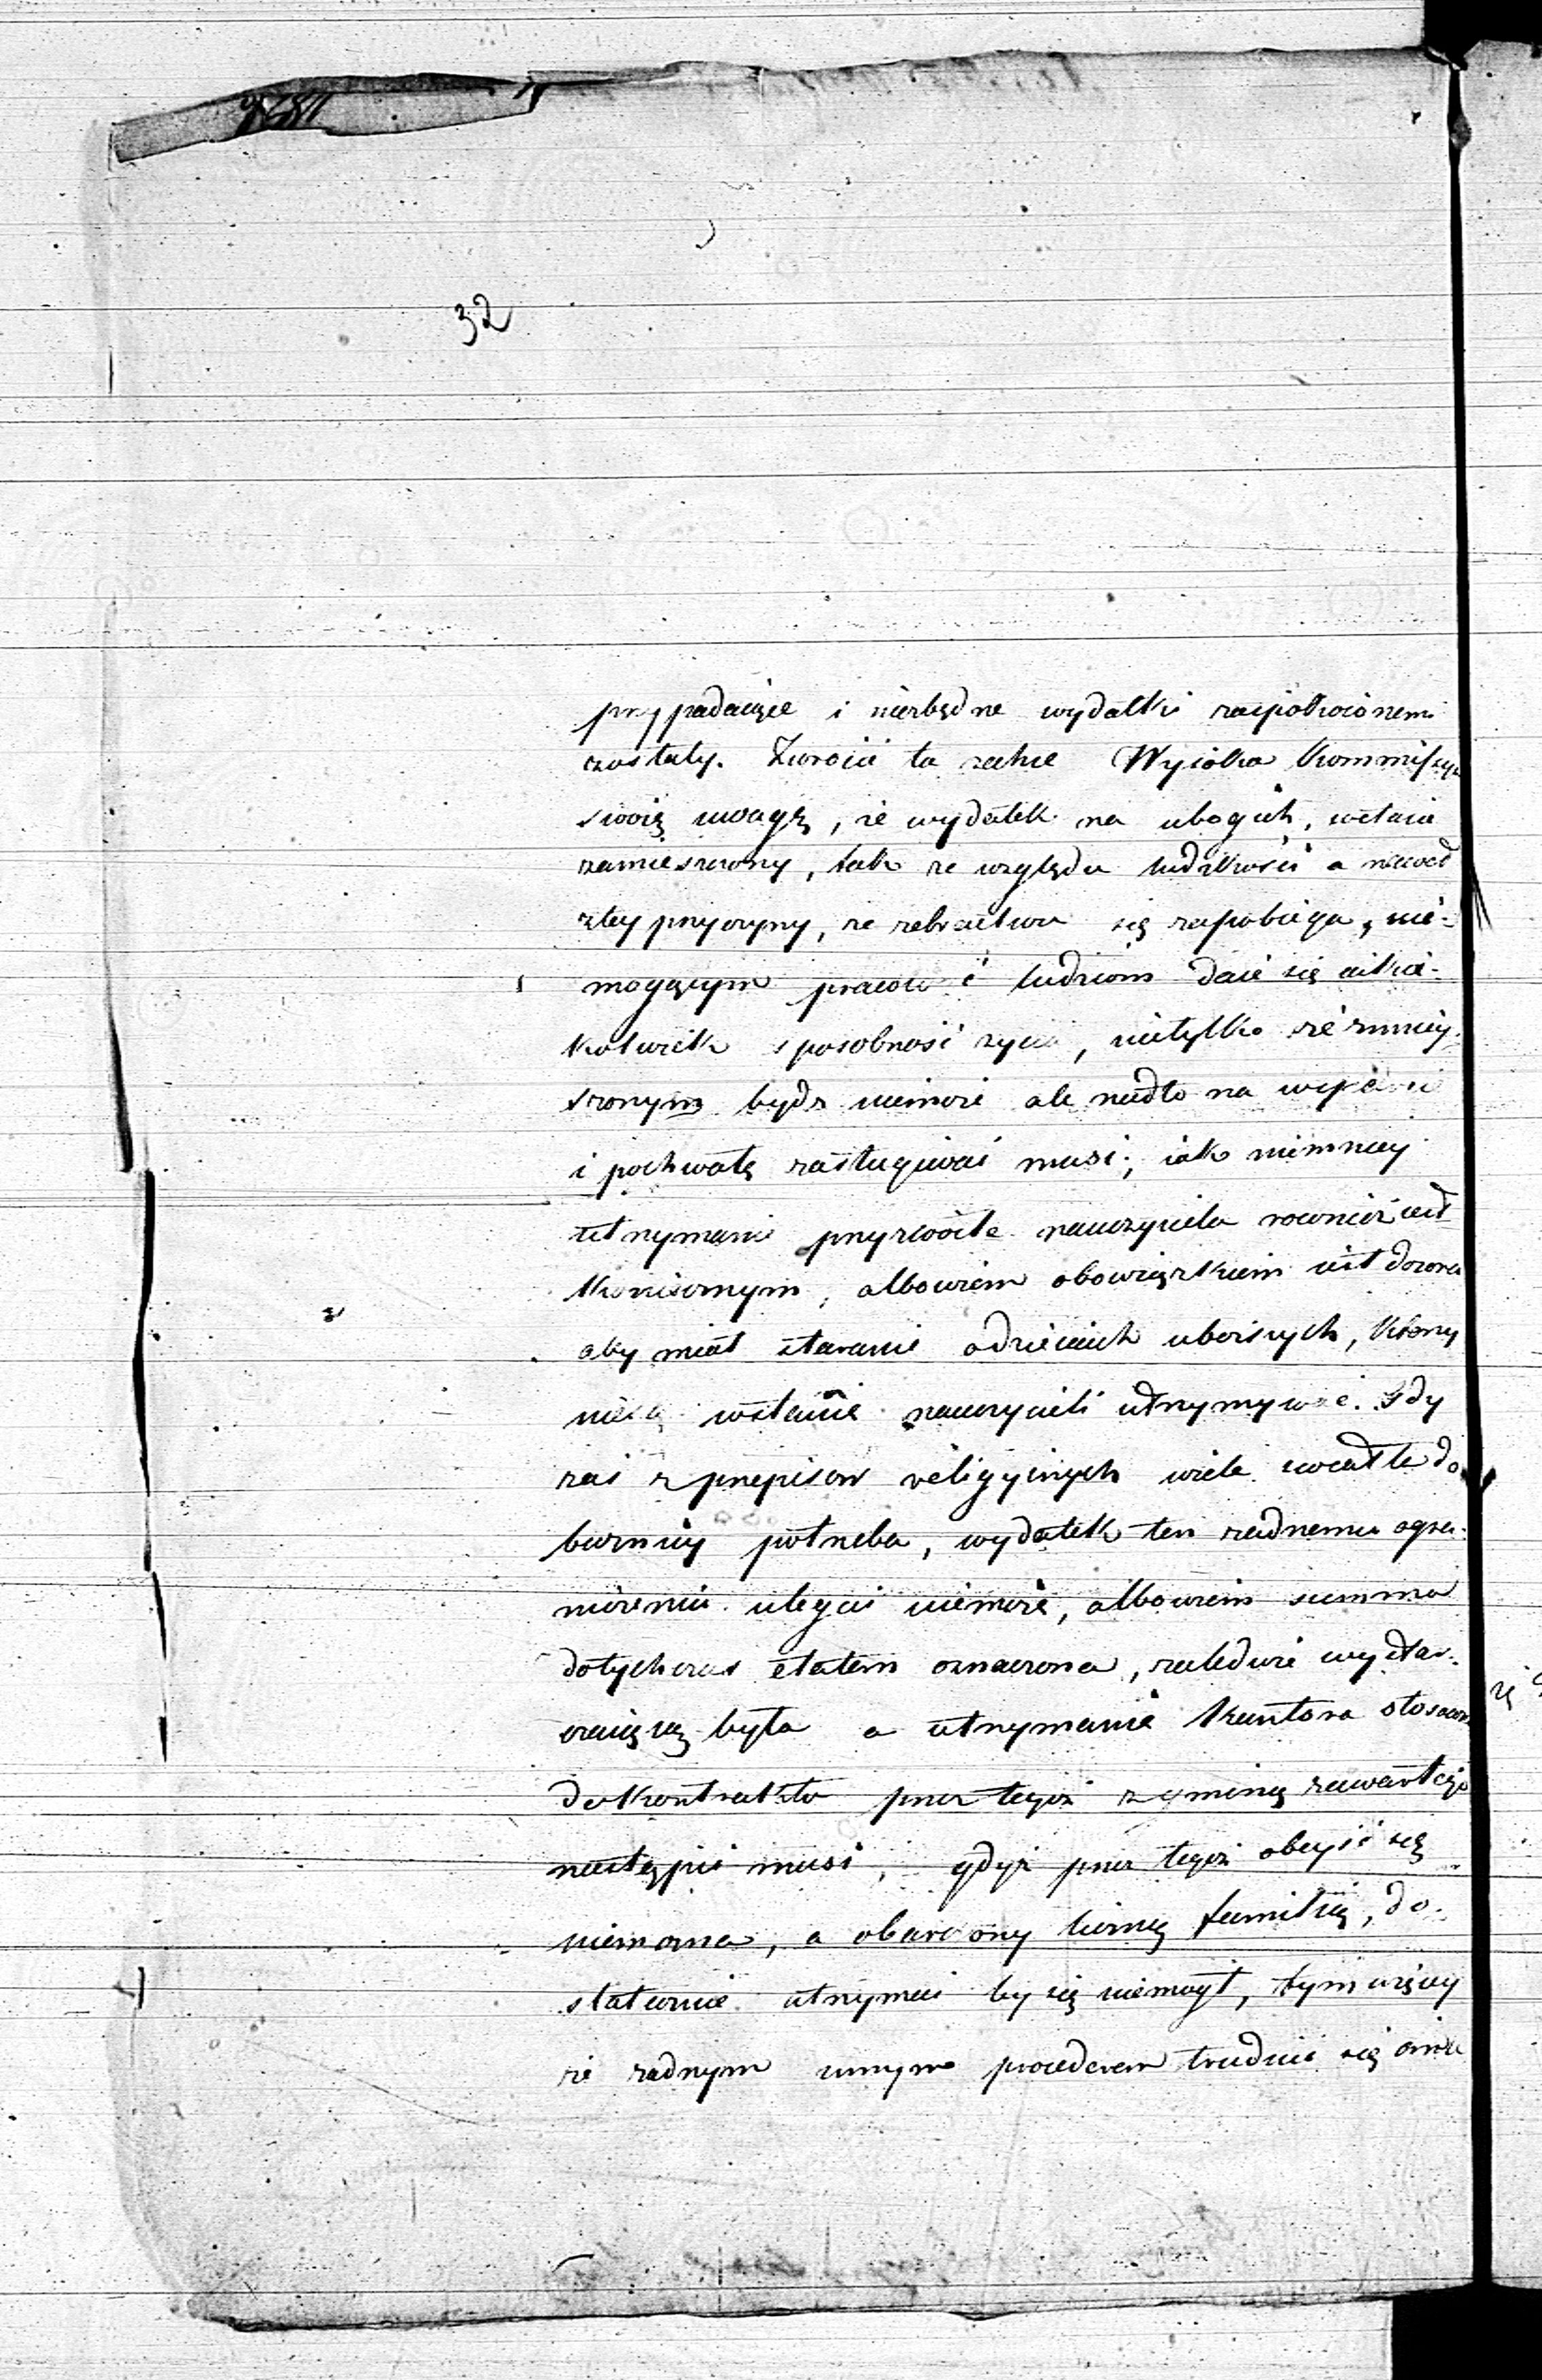 32
przypadaiące i niezbędne wydatki zaspokoionemi
zostały. Zwrócić ta zechce Wysoka Kommissya
swoię uwagę, że wydatek na ubogich, w etacie
zamieszczony, tak ze względu ludzkości a nawet
z tey przyczyny, że żebractwu się zapobiega, nie-
mogącym pracować ludziom daie się iaka-
kolwiek sposobność życia, nietylko że zmniey-
szonym bydź niemoże ale nadto na
i pochwałę zasługiwać musi; iak niemniey
utrzymanie przyzwoite nauczyciela również iest
koniecznym, albowiem obowiązkiem iest dozoru
aby miał staranie o dzieciach uboższych, którzy
niesą wstanie nauczycieli utrzymywać. Gdy
zaś z przepisow religyinych wiele swiatła do
bużnicy potrzeba, wydatek ten żadnemu ogra-
niczeniu uledz niemoże, albowiem summa
dotychczas etatem oznaczona, zaledwie wystar-
czaiącą była a utrzymanie kantora stosownie
do kontraktu przez tegoż z gminą zawartego
nastąpić musi, gdyż przez tegoż obeyść się
niemożna, a obarczony liczną familią, do-
statecznie utrzymać by się niemogł, tym więcey
że żadnym innym procederem trudnić się